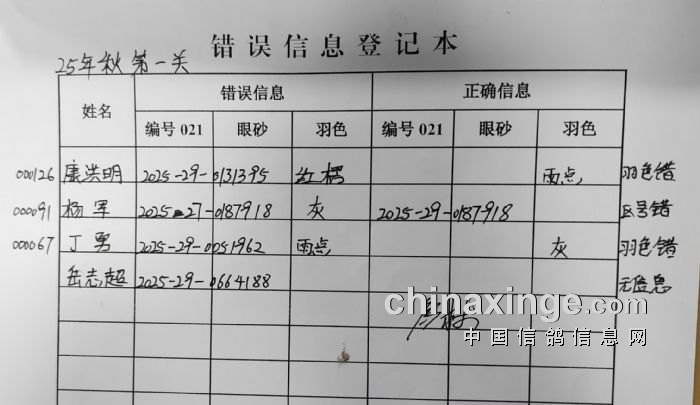 错误信息登记本
25年秋第一关
姓名 错误信息 正确信息
编号021 眼砂 羽色 编号021 眼砂 羽色
000126 康洪明 2025-29-0131395 红楞 雨点 羽色错
000091 杨军 2025-27-0187918 灰 2025-29-0187918 区号错
000067 丁勇 2025-29-0051962 雨点 灰 羽色错
岳志超 2025-29-0664188 无信息
chinaxinge.com
中国信鸽信息网